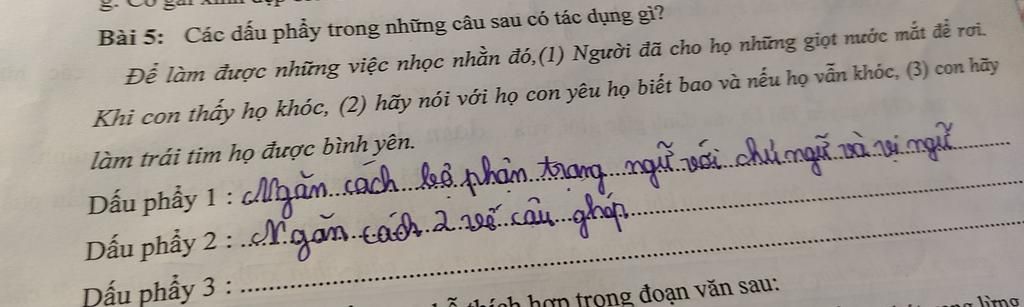 Bài 5: Các dấu phẩy trong những câu sau có tác dụng gì?
Để làm được những việc nhọc nhằn đó,(1) Người đã cho họ những giọt nước mắt để rơi.
Khi con thấy họ khóc, (2) hãy nói với họ con yêu họ biết bao và nếu họ vẫn khóc, (3) con hãy
làm trái tim họ được bình yên.
Dấu phẩy 1 : Ngăn cách bộ phận trạng ngữ với chủ ngữ và vị ngữ
Dấu phẩy 2 : Ngăn cách 2 vế câu ghép
Dấu phẩy 3 :
thích hợp trong đoạn văn sau: